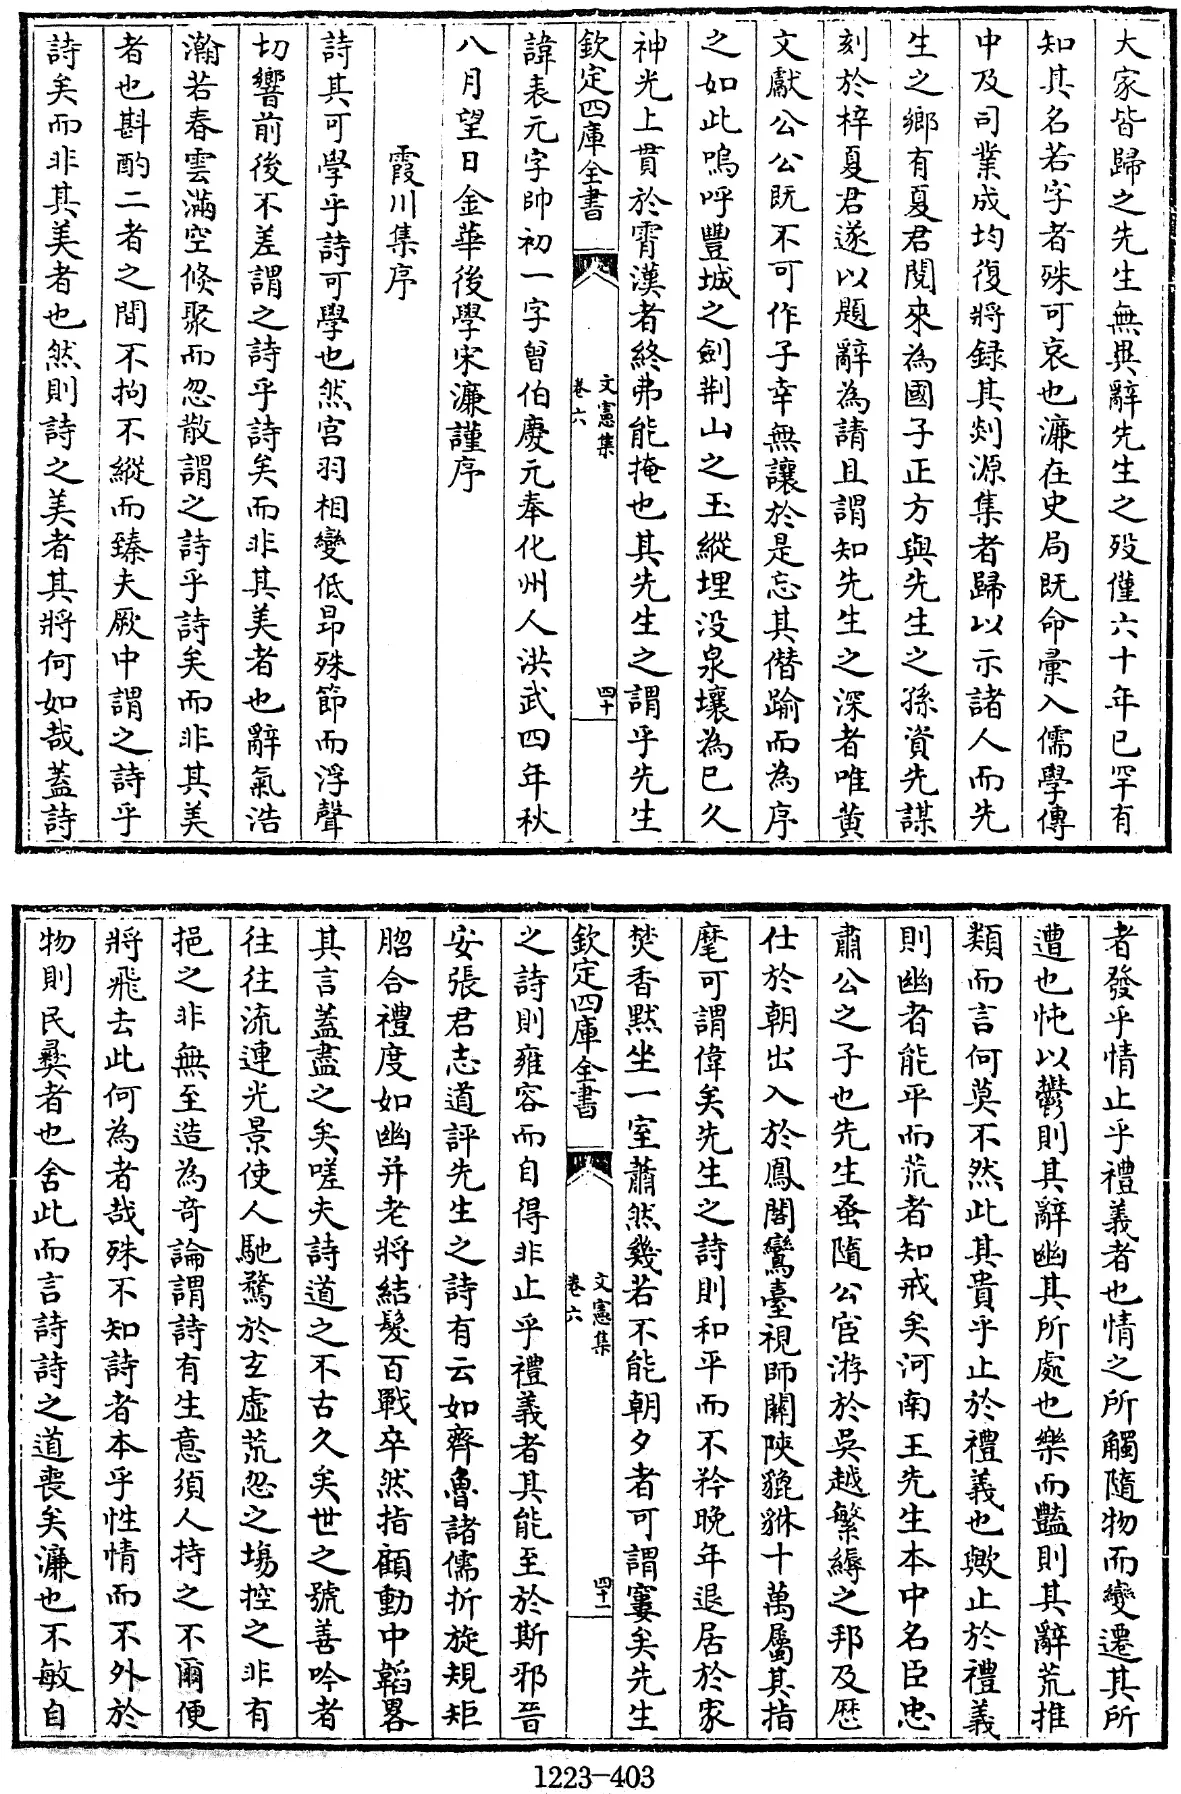 大家皆歸之先生無異辭先生之歿僅六十年已罕有
知其名若字者殊可哀也濂在史局既命彚入儒學傳
中及司業成均復將録其剡源集者歸以示諸人而先
生之鄉有夏君閱來為國子正方與先生之孫資先謀
刻於梓夏君遂以題辭為請且謂知先生之深者唯黄
文獻公公既不可作子幸無讓於是忘其僣踰而為序
之如此嗚呼豐城之劍荆山之玉縱埋没泉壤為已久
神光上貫於霄漢者終弗能掩也其先生之謂乎先生
欽定四庫全書
文憲集
卷六
四十
諱表元字帥初一字曾伯慶元奉化州人洪武四年秋
八月望日金華後學宋濂謹序
霞川集序
詩其可學乎詩可學也然宫羽相變低昂殊節而浮聲
切響前後不差謂之詩乎詩矣而非其美者也辭氣浩
瀚若春雲滿空倐聚而忽散謂之詩乎詩矣而非其美
者也斟酌二者之間不拘不縱而臻夫厥中謂之詩乎
詩矣而非其美者也然則詩之美者其將何如哉蓋詩
者發乎情止乎禮義者也情之所觸隨物而變遷其所
遭也忳以鬱則其辭幽其所處也樂而豔則其辭荒推
類而言何莫不然此其貴乎止於禮義也歟止於禮義
則幽者能平而荒者知戒矣河南王先生本中名臣忠
肅公之子也先生蚤隨公宦游於吳越繁縟之邦及歴
仕於朝出入於鳳閣鸞臺視師關陜貔貅十萬屬其指
麾可謂偉矣先生之詩則和平而不矜晚年退居於家
焚香黙坐一室蕭然幾若不能朝夕者可謂窶矣先生
欽定四庫全書
文憲集
卷六
四十一
之詩則雍容而自得非止乎禮義者其能至於斯邪晉
安張君志道評先生之詩有云如齊魯諸儒折旋規矩
脗合禮度如幽并老將結髮百戰卒然指顧動中韜畧
其言蓋盡之矣嗟夫詩道之不古久矣世之號善吟者
往往流連光景使人馳騖於玄虛荒忽之塲控之非有
挹之非無至造為竒論謂詩有生意須人持之不爾便
將飛去此何為者哉殊不知詩者本乎性情而不外於
物則民彞者也舍此而言詩詩之道喪矣濂也不敏自
1223-403